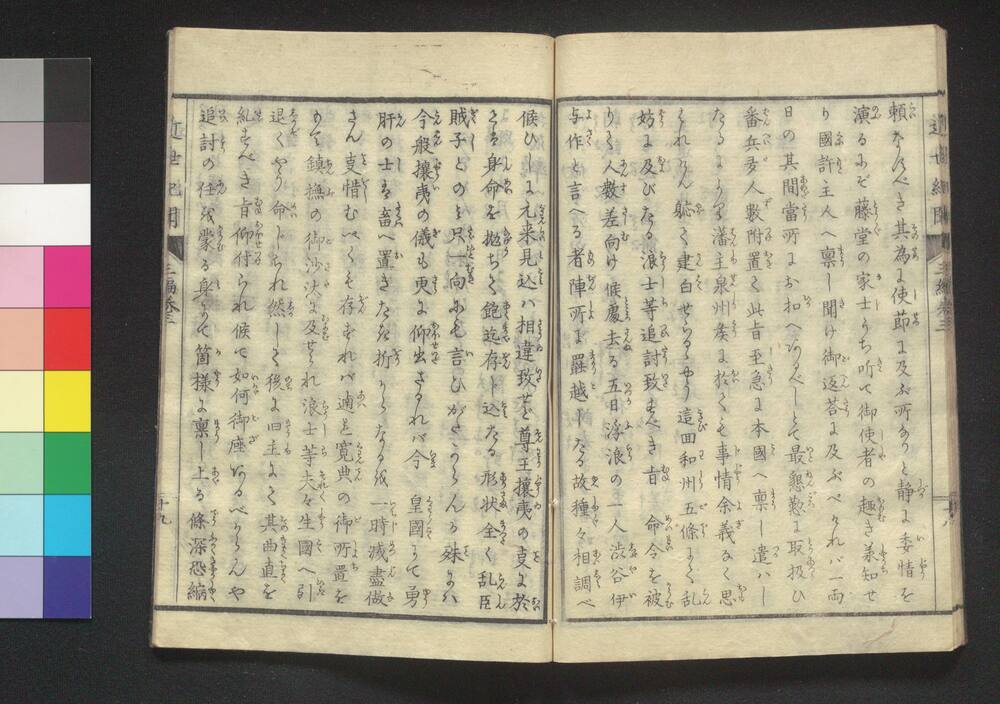 頼なすべき其為に使節に及ぶ所なりと静に委情を
演るにぞ藤堂の家士うち听て御使者の趣き承知せ
り國許主人へ禀し聞け御返荅に及ぶべけれバ一両
日の其間當所にお扣へあるべしとて最懇懃に取扱ひ
番兵多人數附置て此旨至急に本國へ禀し遣ハし
たるにより藩主泉州矦に於ても事情余義なく思
はれけん軈て建白せらるゝやう這回和州五條にて乱
妨に及びたる浪士等追討致すべき旨 命令を被
りて人數差向け候處去る五日浮浪の一人渋谷伊
与作と言へる者陣所に罷越したる故種々相調べ
候ひしに元来見込ハ相違致せど尊王攘夷の㕝に於
てハ身命を抛ちて飽迄存し込たる形状全く乱臣
賊子とのミ只一向にも言ひがたからんか殊にハ
今般攘夷の儀も更に仰出されバ今 皇國にて勇
肝の士を畜へ置きたき折からなる故一時滅盡做
さん㕝惜むべくも存ずれバ適を寛典の御所置を
もて鎮撫の御沙汰に及せられ浪士等夫々生國へ引
退くやう命じられ然して後に四主にて其曲直を
糺すべき旨仰付られ候て如何御座あるべからんや
追討の任を蒙る身にて箇様に禀し上る條深恐縮
三編巻三
十九